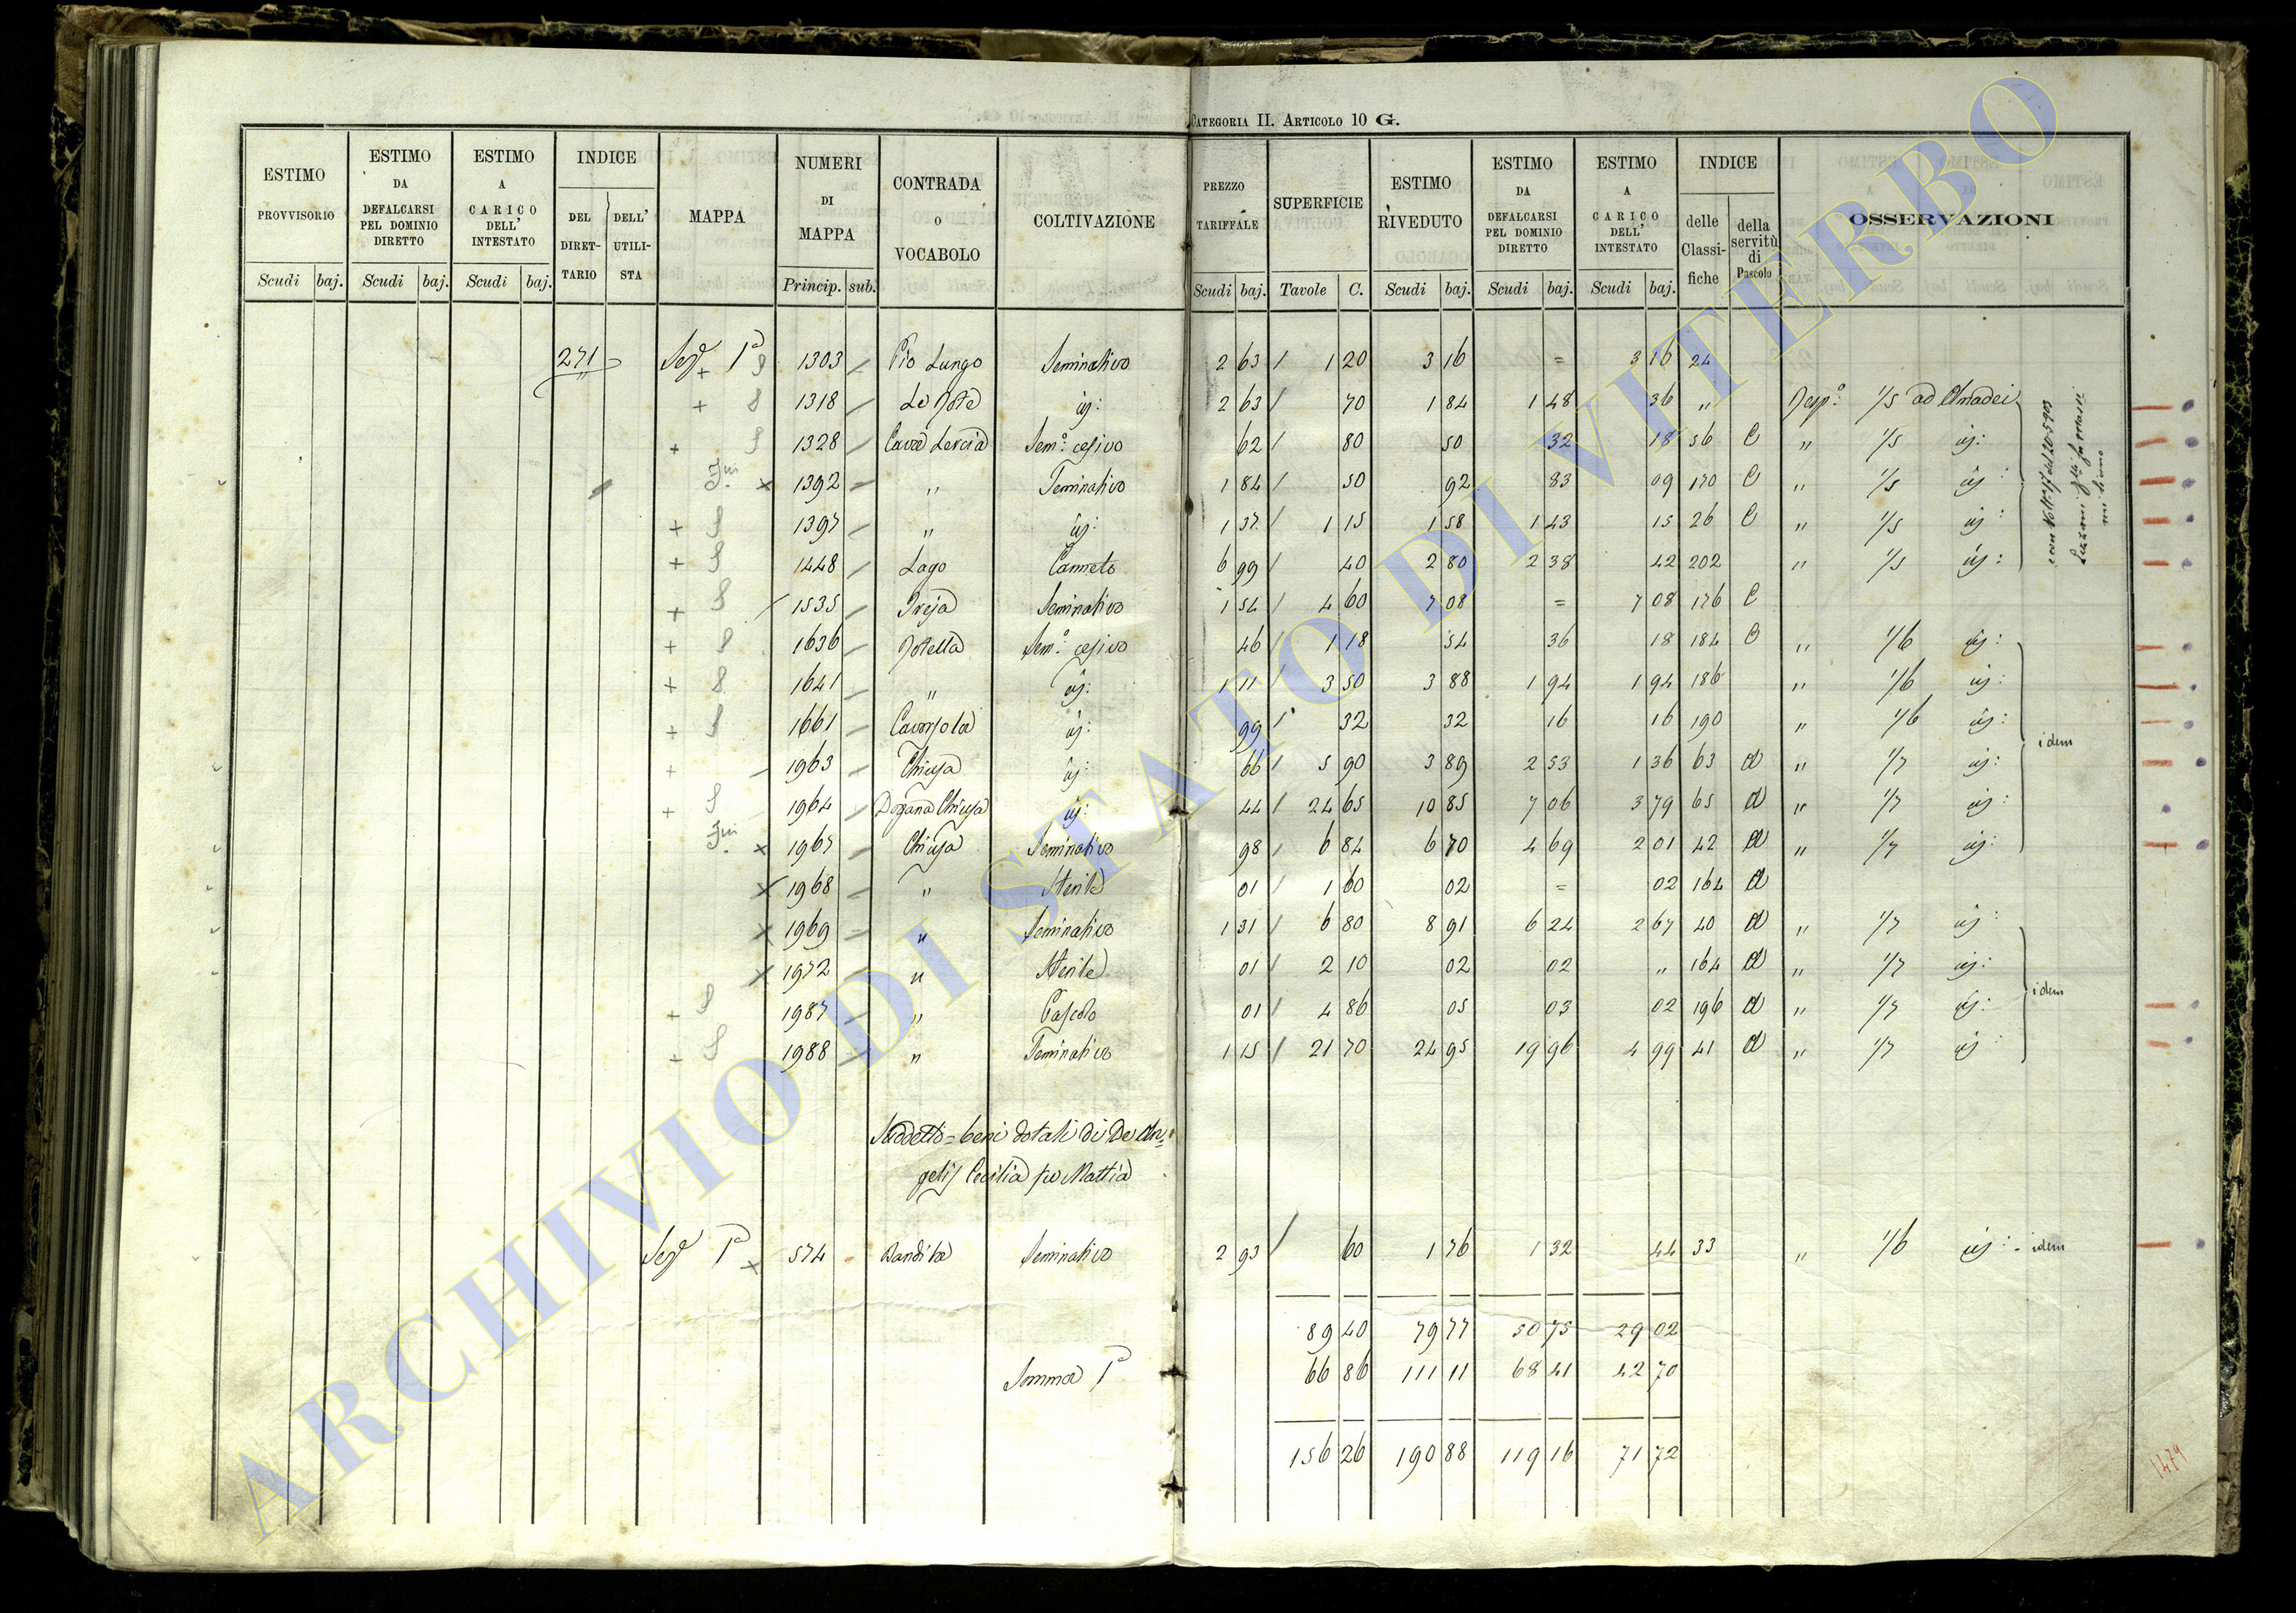 CATEGORIA II. ARTICOLO 10 G.
ESTIMO PROVVISORIO Scudi baj. | ESTIMO DA DEFALCARSI PEL DOMINIO DIRETTO Scudi baj. | ESTIMO A CARICO DELL' INTESTATO Scudi baj. | INDICE DEL DIRET-TARIO | DELL' UTILI-STA | MAPPA | NUMERI DI MAPPA Princip. sub. | CONTRADA O VOCABOLO | COLTIVAZIONE | PREZZO TARIFFALE Scudi baj. | SUPERFICIE Tavole C. | ESTIMO RIVEDUTO Scudi baj. | ESTIMO DA DEFALCARSI PEL DOMINIO DIRETTO Scudi baj. | ESTIMO A CARICO DELL' INTESTATO Scudi baj. | INDICE delle Classi-fiche | della servitù di Pascolo | OSSERVAZIONI
271 Sez.e 1a 1303 Pio Lungo Seminativo 2 63 1 20 3 16 = 3 16 24
1318 Le Mote id: 2 63 70 1 84 1 48 36 " Risp: 1/5 ad Amadei
1328 Sem.o cesivo 62 80 50 32 18 56 C " 1/5 id:
1392 " Seminativo 1 84 50 92 83 09 170 C " 1/5 id:
1397 " id: 1 37 1 15 1 58 1 43 15 26 C " 1/5 id:
1448 Lago Canneto 6 99 40 2 80 2 38 42 202 " 1/5 id:
1535 Seminativo 1 54 4 60 7 08 = 7 08 176 C
1636 Sem.o cesivo 46 1 18 54 36 18 184 C " 1/6 id:
1641 " id: 1 11 3 50 3 88 1 94 1 94 186 " 1/6 id:
1661 id: 99 32 32 16 16 190 " 1/6 id:
idem
1963 Chiusa id: 66 5 90 3 89 2 53 1 36 63 A " 1/7 id:
1964 Dogana Chiusa id: 44 24 65 10 85 7 06 3 79 65 A " 1/7 id:
1967 Chiusa Seminativo 98 6 84 6 70 4 69 2 01 42 A " 1/7 id:
1968 " Sterile 01 1 60 02 = 02 164 A
1969 " Seminativo 1 31 6 80 8 91 6 24 2 67 40 A " 1/7 id
1972 " Sterile 01 2 10 02 02 " 164 A " 1/7 id:
idem
1987 " Pascolo 01 4 86 05 03 02 196 A " 1/7 id:
1988 " Seminativo 1 15 21 70 24 95 19 96 4 99 41 A " 1/7 id
Suddetto = beni dotali di De An=
gelis Cecilia fu Mattia
Sez.e 1a 574 Bandita Seminativo 2 93 60 1 76 1 32 44 33 " 1/6 id: - idem
89 40 79 77 50 75 29 02
Somma 1a 66 86 111 11 68 41 42 70
156 26 190 88 119 16 71 72
1479
ARCHIVIO DI STATO DI VITERBO